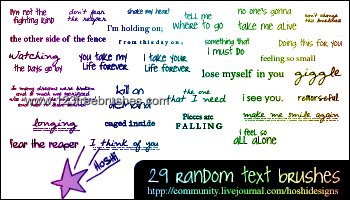 I'm not the
fighting kind
don't fear
the reaper
shake my heart
tell me
where to go
no one's gonna
take me alive
don't change
this
I'm holding on;
the other side of the fence
From this day on;
something that
I must do
Doing this for you
Watching
the Days go by
you take my
Life forever
I take your
Life forever
feeling so small
lose myself in you
giggle
so many dreams were broken
and so much was
kill on
demand
the one
that I need
I see you.
remorseful
www.123freebrushes.com
longing
caged inside
Pieces are
FALLING
make me smile again
fear the reaper
I think of you
I feel so
all alone
HOSHI
29 random text brushes
http://community.livejournal.com/hoshidesigns